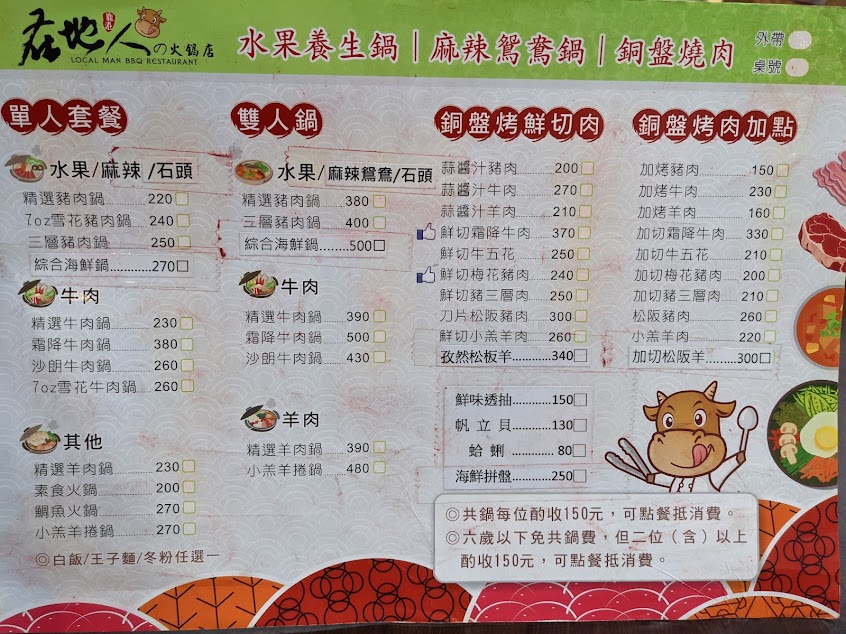 在地人の火鍋店
LOCAL MAN BBQ RESTAURANT
水果養生鍋|麻辣鴛鴦鍋|銅盤燒肉
外帶
桌號
單人套餐
水果/麻辣/石頭
精選豬肉鍋 220
7oz雪花豬肉鍋 240
三層豬肉鍋 250
綜合海鮮鍋............270
牛肉
精選牛肉鍋 230
霜降牛肉鍋 380
沙朗牛肉鍋 260
7oz雪花牛肉鍋 260
其他
精選羊肉鍋 230
素食火鍋 200
鯛魚火鍋 270
小羔羊捲鍋 270
◎白飯/王子麵/冬粉任選一
雙人鍋
水果/麻辣鴛鴦/石頭
精選豬肉鍋 380
三層豬肉鍋 400
綜合海鮮鍋.........500
牛肉
精選牛肉鍋 390
霜降牛肉鍋 500
沙朗牛肉鍋 430
羊肉
精選羊肉鍋 390
小羔羊捲鍋 480
銅盤烤鮮切肉
蒜醬汁豬肉 200
蒜醬汁牛肉 270
蒜醬汁羊肉 210
鮮切霜降牛肉 370
鮮切牛五花 250
鮮切梅花豬肉 240
鮮切豬三層肉 250
刀片松阪豬肉 300
鮮切小羔羊肉 260
孜然松板羊.........340
鮮味透抽............150
帆立貝............130
蛤蜊............80
海鮮拼盤............250
銅盤烤肉加點
加烤豬肉 150
加烤牛肉 230
加烤羊肉 160
加切霜降牛肉 330
加切牛五花 210
加切梅花豬肉 200
加切豬三層肉 210
松阪豬肉 260
小羔羊肉 220
加切松阪羊.........300
◎共鍋每位酌收150元，可點餐抵消費。
◎六歲以下免共鍋費，但二位（含）以上
酌收150元，可點餐抵消費。